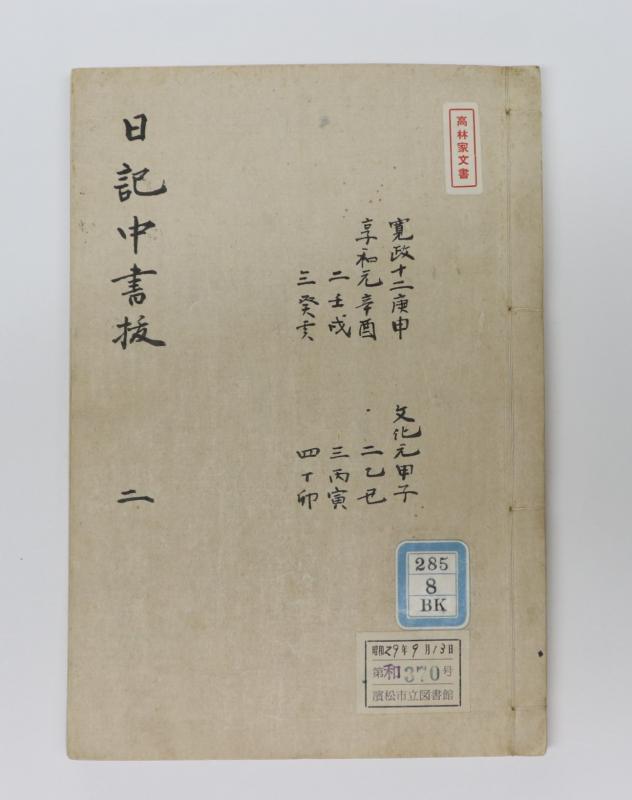 高林家文書
寛政十二庚申
享和元辛酉
二壬戌
三癸亥
文化元甲子
二乙丑
三丙寅
四丁卯
日記中書抜
二
285
8
BK
昭和29年9月13日
第和370号
濱松市立図書館